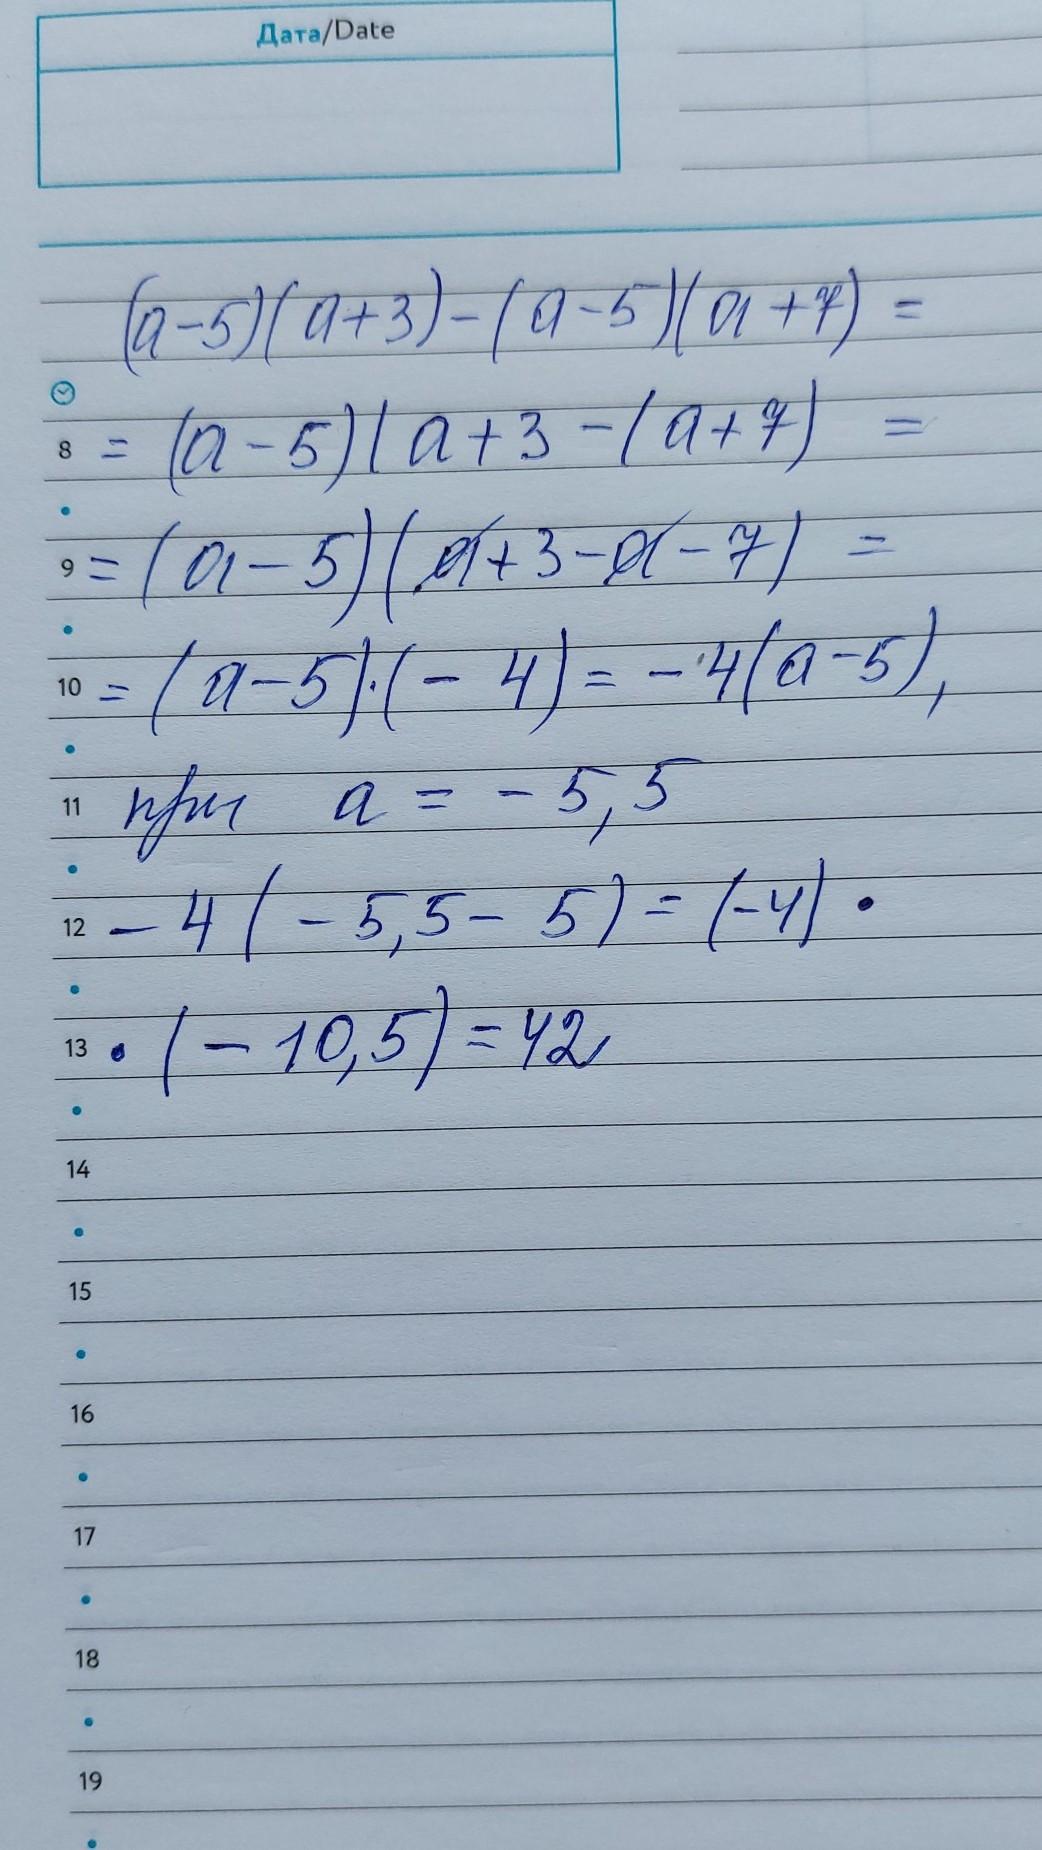 Дата/Date
(a-5)(a+3)-(a-5)(a+7)=
8 = (a-5)(a+3-(a+7) =
9 = (a-5)(a+3-a-7) =
10 = (a-5)·(-4)=-4(a-5),
11 при a = -5,5
12 -4(-5,5-5)=(-4)·
13 ·(-10,5)=42
14
15
16
17
18
19